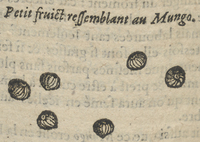 Petit fruict ressemblant au Mungo.